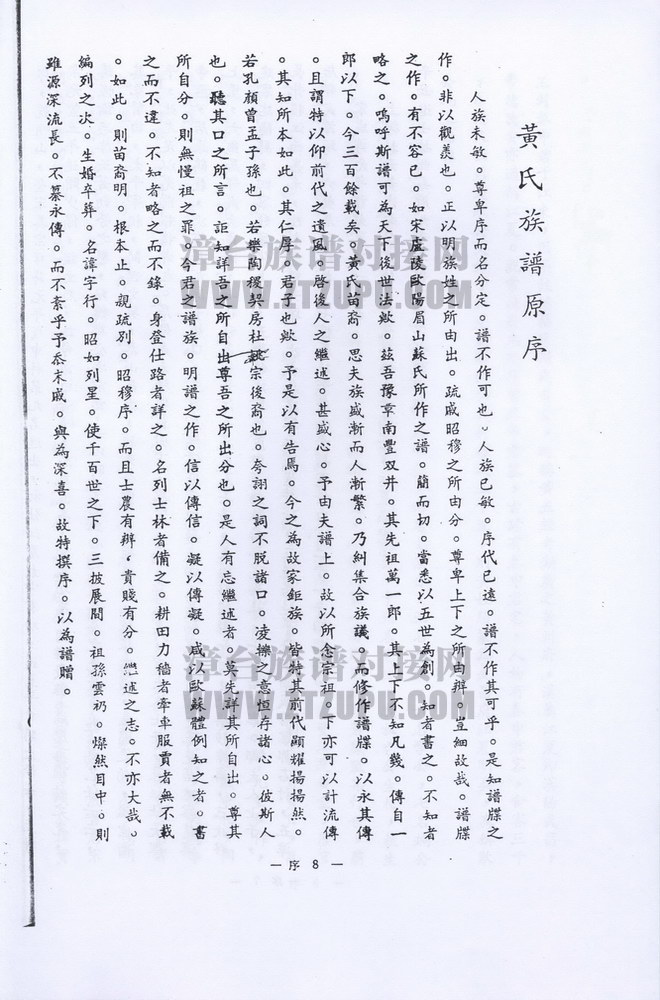 黃氏族譜原序
人族未敏。尊卑序而名分定。譜不作可也。人族已敏。序代已遠。譜不作其可乎。是知譜牒之
作。非以觀羨也。正以明族姓之所由出。疏戚昭穆之所由分。尊卑上下之所由辨。豈細故哉。譜牒
之作。有不容已。如宋盧陵歐陽眉山蘇氏所作之譜。簡而切。當悉以五世為創。知者書之。不知者
略之。嗚呼斯譜可為天下後世法歟。茲吾豫章南豐双井。其先祖萬一郎。其上下不知凡幾。傳自一
郎以下。今三百餘載矣。黃氏苗裔。思夫族盛漸而人漸繁。乃糾集合族議。而修作譜牒。以永其傳
。且謂特以仰前代之遺風。啓後人之繼述。甚盛心。予由夫譜上。故以所念宗祖。下亦可以計流傳
。其知所本如此。其仁厚。君子也歟。予是以有告焉。今之為故家鉅族。皆特其前代顯耀揚揚然。
若孔顏曾孟子孫也。若樂陶稷契房杜姚宗後裔也。夸詡之詞不脱諸口。凌轢之意恒存諸心。彼斯人
也。聽其口之所言。詎知詳吾之所自出尊吾之所出分也。是人有忘繼述者。莫先詳其所自出。尊其
所自分。則無慢祖之罪。今君之譜族。明譜之作。信以傳信。疑以傳疑。咸以歐蘇體例知之者。書
之而不違。不知者略之而不錄。身登仕路者詳之。名列士林者備之。耕田力穡者牽車服賈者無不載
。如此。則苗裔明。根本止。親疏別。昭穆序。而且士農有辨，貴賤有分。繼述之志。不亦大哉。
編列之次。生婚卒葬。名諱字行。昭如列星。使千百世之下。三披展間。祖孫雲礽。燦然目中。則
雖源深流長。不綦永傳。而不紊乎予忝末戚。與為深喜。故特撰序。以為譜贈。
— 序 8 —
漳台族谱对接网
WWW.ZTZUPU.COM
漳台族谱对接网
WWW.ZTZUPU.COM